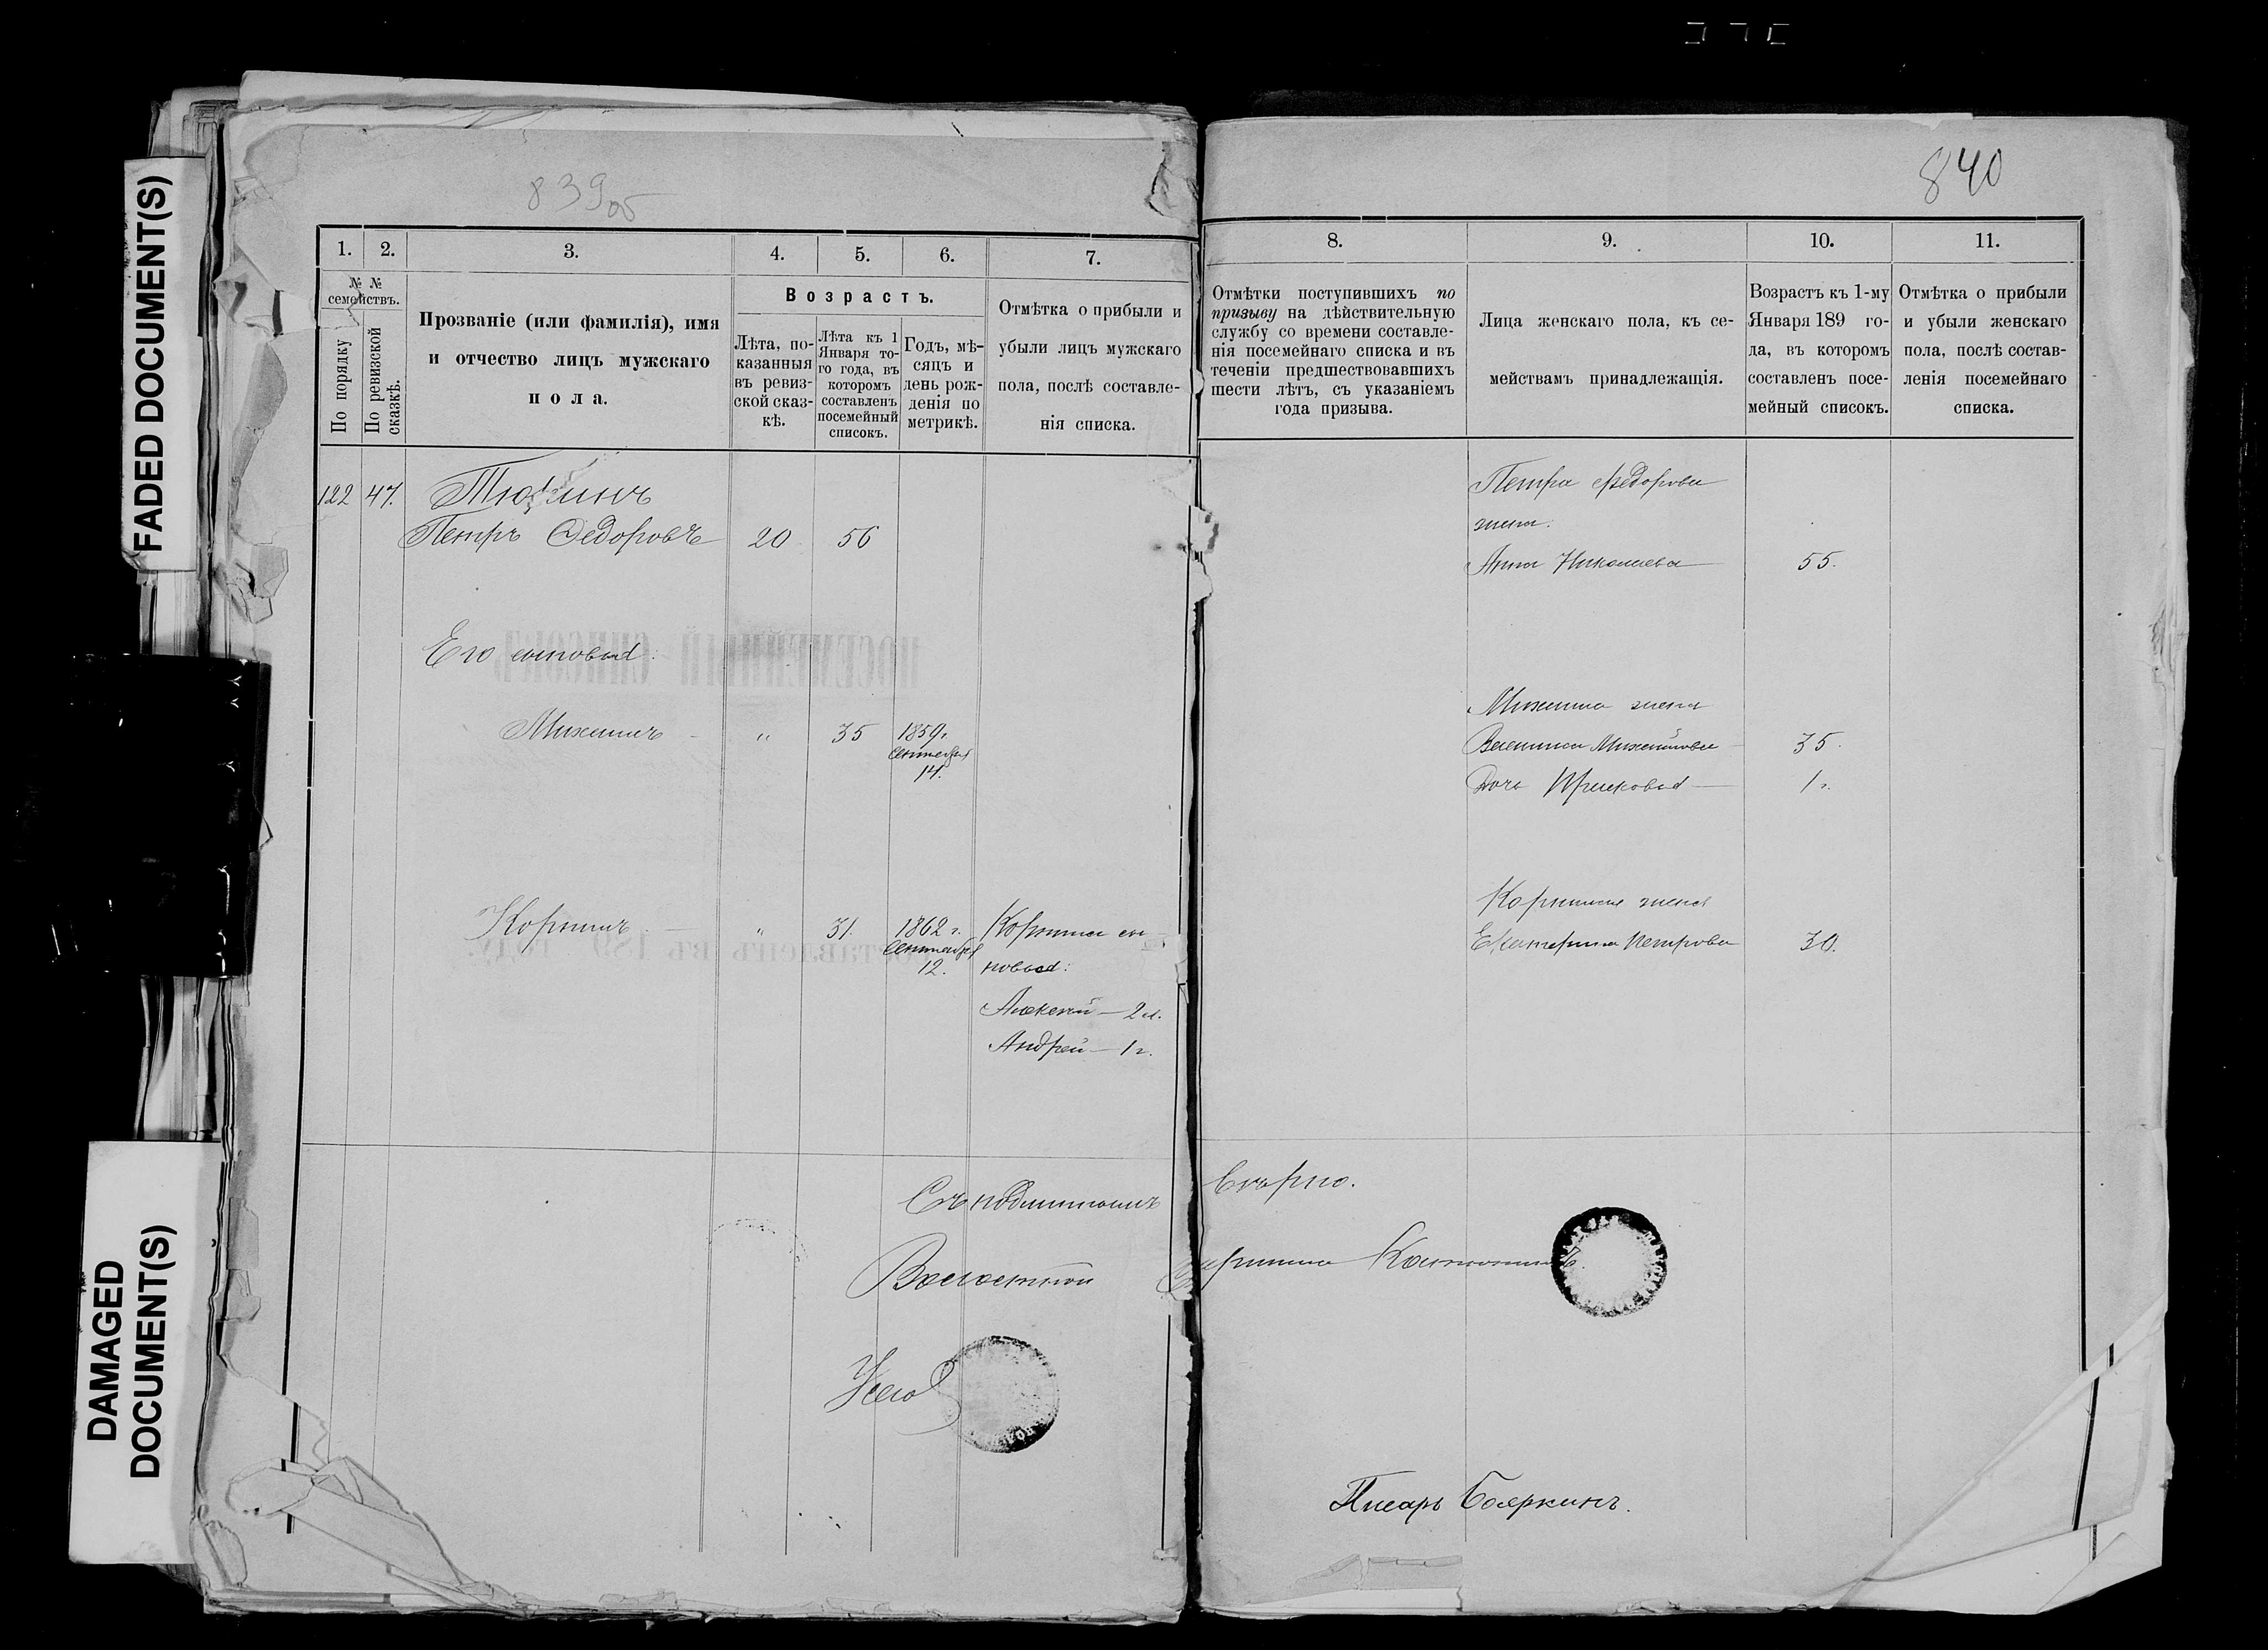 FADED DOCUMENT(S)
DAMAGED
DOCUMENT(S)
839об
1. 2. 3. 4. 5. 6. 7.
№ №
семействъ.
По порядку
По ревизской
сказкѣ.
Прозваніе (или фамилія), имя
и отчество лицъ мужскаго
пола.
Возрастъ.
Лѣта, по-
казанныя
въ ревиз-
ской сказ-
кѣ.
Лѣта къ 1
Января то-
го года, въ
которомъ
составленъ
посемейный
списокъ.
Годъ, мѣ-
сяцъ и
день рож-
денія по
метрикѣ.
Отмѣтка о прибыли и
убыли лицъ мужскаго
пола, послѣ составле-
нія списка.
122 47.
Петръ Федоровъ 20 56
Его сыновья:
Михаилъ - " 35 1859 г.
Сентября
14.
Корнилъ - " 31. 1862 г.
Сентября
12.
Корнила сы-
новья:
Алексей - 2 л.
Андрей - 1 г.
Съ подлиннымъ
Волостной
840
8. 9. 10. 11.
Отмѣтки поступившихъ по
призыву на дѣйствительную
службу со времени составле-
нія посемейнаго списка и въ
теченіи предшествовавшихъ
шести лѣтъ, съ указаніемъ
года призыва.
Лица женскаго пола, къ се-
мействамъ принадлежащія.
Возрастъ къ 1-му
Января 189 го-
да, въ которомъ
составленъ посе-
мейный списокъ.
Отмѣтка о прибыли
и убыли женскаго
пола, послѣ состав-
ленія посемейнаго
списка.
Петра Федорова
жена:
Анна Николаева 55.
Михаила жена
Михайлова 35.
Дочь Прасковья 1 г.
Корнила жена
Екатерина Петрова 30.
вѣрно.
Старшина
Писарь Бояркинъ.